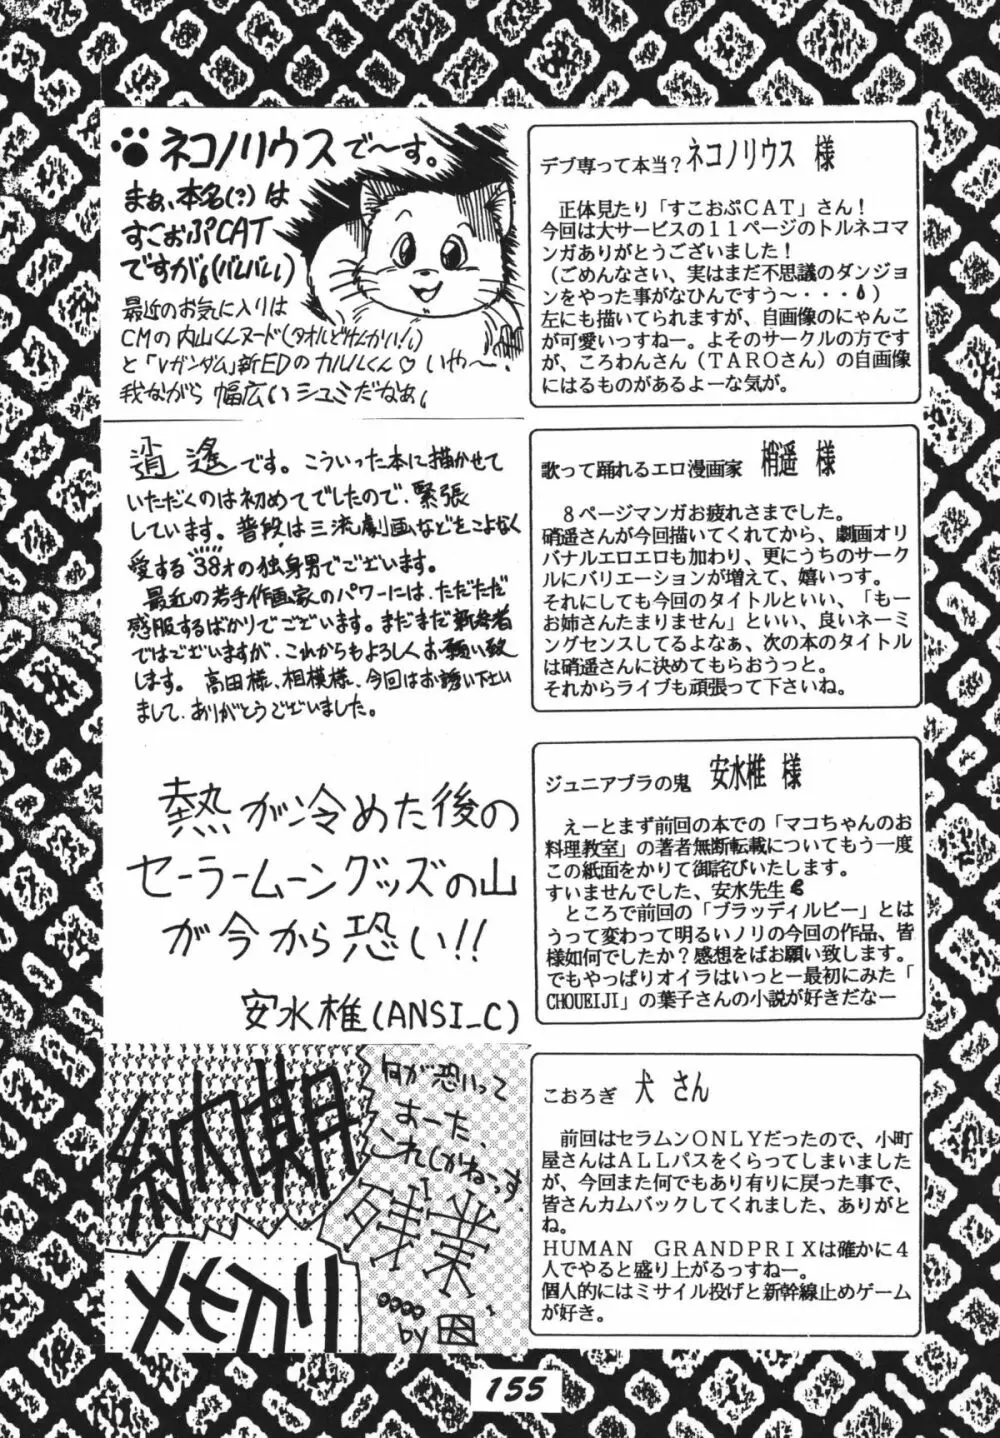 ネコノリウスで〜す。
まぁ、本名(?)は
すこおぷCAT
ですが。(バレバレ)
最近のお気に入りは
CMの内山くんヌード(タオルどけんかい!)
と「Vガンダム」新EDのカルルくん♡ いや〜、
我ながら 幅広いシュミだなぁ。
デブ専って本当？ネコノリウス 様
正体見たり「すこおぷＣＡＴ」さん！
今回は大サービスの１１ページのトルネコマ
ンガありがとうございました！
（ごめんなさい、実はまだ不思議のダンジョ
ンをやった事がなひんですう〜・・・）
左にも描いてられますが、自画像のにゃんこ
が可愛いっすねー。よそのサークルの方です
が、ころわんさん（ＴＡＲＯさん）の自画像
にはるものがあるよーな気が。
逍遙です。こういった本に描かせて
いただくのは初めてでしたので、緊張
しています。普段は三流劇画などをこよなく
愛する38才の独身男でございます。
最近の若手作画家のパワーには、ただただ
感服するばかりでございます。まだまだ新参者
ではございますが、これからもよろしくお願い致
します。 高田様、相模様、今回はお誘い下さい
まして、ありがとうございました。
歌って踊れるエロ漫画家 梢遥 様
８ページマンガお疲れさまでした。
硝遥さんが今回描いてくれてから、劇画オリ
バナルエロエロも加わり、更にうちのサーク
ルにバリエーションが増えて、嬉いっす。
それにしても今回のタイトルといい、「もー
お姉さんたまりません」といい、良いネーミ
ングセンスしてるよなぁ、次の本のタイトル
は硝遥さんに決めてもらおうっと。
それからライブも頑張って下さいね。
熱が冷めた後の
セーラームーングッズの山
が今から恐い!!
安水椎(ANSI_C)
ジュニアブラの鬼 安水椎 様
えーとまず前回の本での「マコちゃんのお
料理教室」の著者無断転載についてもう一度
この紙面をかりて御詫びいたします。
すいませんでした、安水先生
ところで前回の「ブラッディルビー」とは
うって変わって明るいノリの今回の作品、皆
様如何でしたか？感想をばお願い致します。
でもやっぱりオイラはいっとー最初にみた「
CHOUEIJI」の葉子さんの小説が好きだなー
納期
〆切り
何が恐いって
あーた、
これしかねーっす
残業
by 困
こおろぎ 犬 さん
前回はセラムンＯＮＬＹだったので、小町
屋さんはＡＬＬパスをくらってしまいました
が、今回また何でもあり有りに戻った事で、
皆さんカムバックしてくれました、ありがと
ね。
ＨＵＭＡＮ ＧＲＡＮＤＰＲＩＸは確かに４
人でやると盛り上がるっすねー。
個人的にはミサイル投げと新幹線止めゲーム
が好き。
155